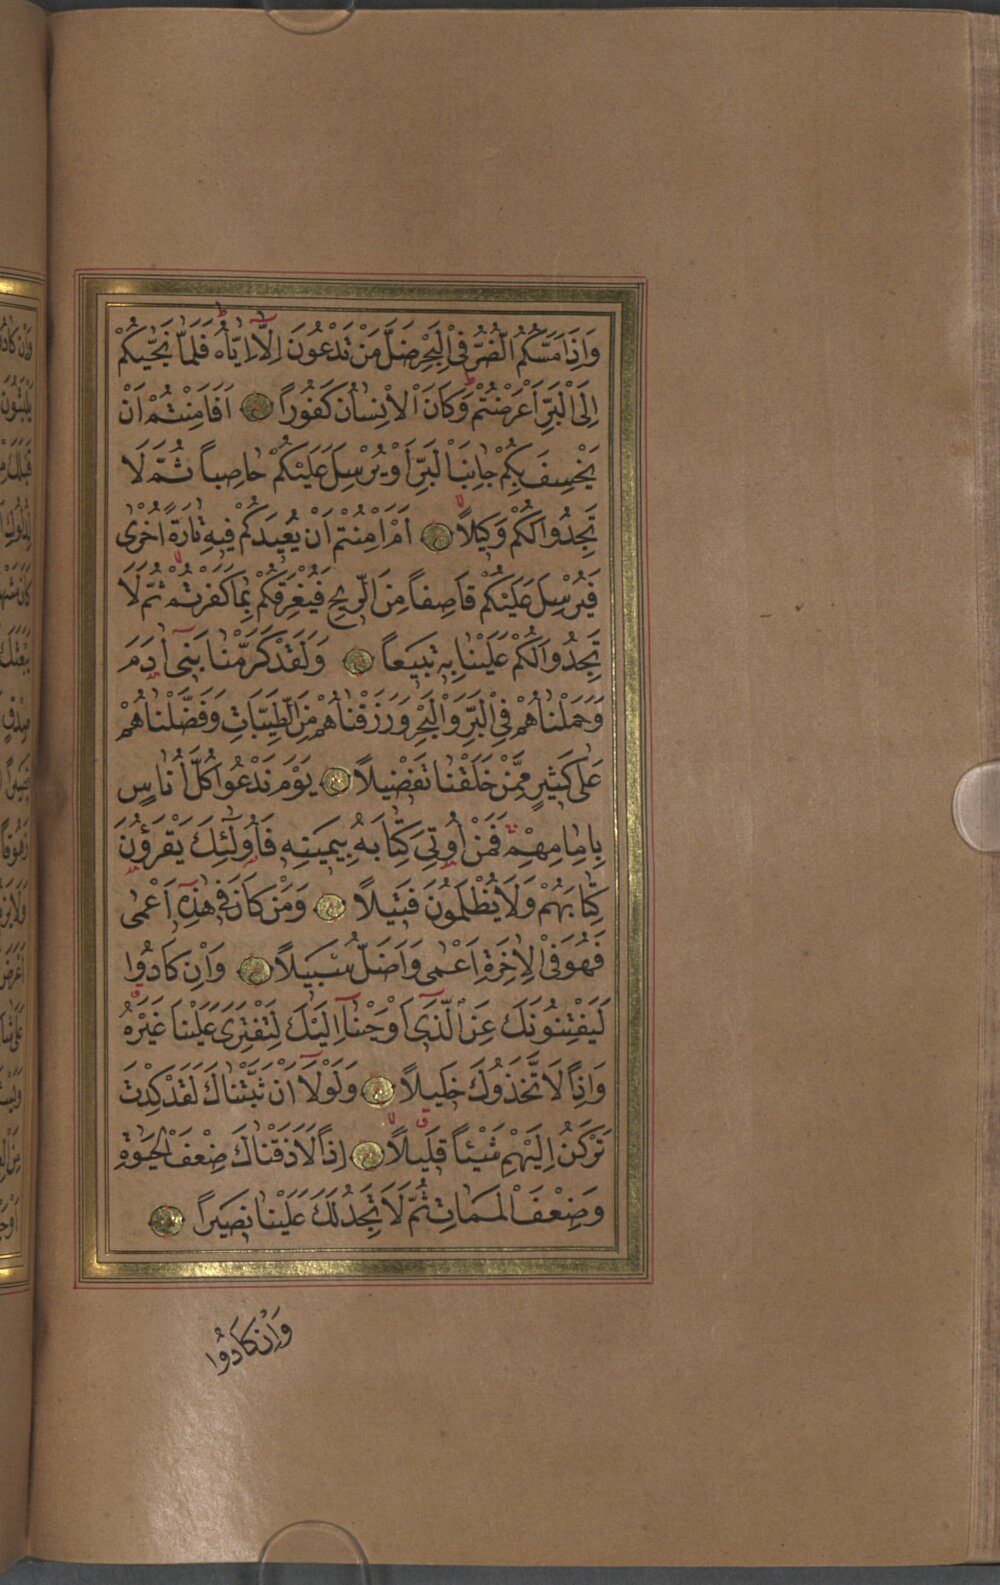 وَاِذَا مَسَّكُمُ الضُّرُّ فِي الْبَحْرِ ضَلَّ مَنْ تَدْعُونَ اِلَّا اِيَّاهُ فَلَمَّا نَجّٰيكُمْ
اِلَى الْبَرِّ اَعْرَضْتُمْ وَكَانَ الْاِنْسَانُ كَفُورًا اَفَاَمِنْتُمْ اَنْ
يَخْسِفَ بِكُمْ جَانِبَ الْبَرِّ اَوْ يُرْسِلَ عَلَيْكُمْ حَاصِبًا ثُمَّ لَا
تَجِدُوا لَكُمْ وَكِيلًا اَمْ اَمِنْتُمْ اَنْ يُعِيدَكُمْ فِيهِ تَارَةً اُخْرٰى
فَيُرْسِلَ عَلَيْكُمْ قَاصِفًا مِنَ الرِّيحِ فَيُغْرِقَكُمْ بِمَا كَفَرْتُمْ ثُمَّ لَا
تَجِدُوا لَكُمْ عَلَيْنَا بِهِ تَبِيعًا وَلَقَدْ كَرَّمْنَا بَنِي اٰدَمَ
وَحَمَلْنَاهُمْ فِي الْبَرِّ وَالْبَحْرِ وَرَزَقْنَاهُمْ مِنَ الطَّيِّبَاتِ وَفَضَّلْنَاهُمْ
عَلٰى كَثِيرٍ مِمَّنْ خَلَقْنَا تَفْضِيلًا يَوْمَ نَدْعُوا كُلَّ اُنَاسٍ
بِاِمَامِهِمْ فَمَنْ اُوتِيَ كِتَابَهُ بِيَمِينِهِ فَاُولٰئِكَ يَقْرَؤُنَ
كِتَابَهُمْ وَلَا يُظْلَمُونَ فَتِيلًا وَمَنْ كَانَ فِي هٰذِهِ اَعْمٰى
فَهُوَ فِي الْاٰخِرَةِ اَعْمٰى وَاَضَلُّ سَبِيلًا وَاِنْ كَادُوا
لَيَفْتِنُونَكَ عَنِ الَّذِي اَوْحَيْنَا اِلَيْكَ لِتَفْتَرِيَ عَلَيْنَا غَيْرَهُ
وَاِذًا لَاتَّخَذُوكَ خَلِيلًا وَلَوْلَا اَنْ ثَبَّتْنَاكَ لَقَدْ كِدْتَ
تَرْكَنُ اِلَيْهِمْ شَيْئًا قَلِيلًا اِذًا لَاَذَقْنَاكَ ضِعْفَ الْحَيٰوةِ
وَضِعْفَ الْمَمَاتِ ثُمَّ لَا تَجِدُ لَكَ عَلَيْنَا نَصِيرًا
وَاِنْ كَادُوا